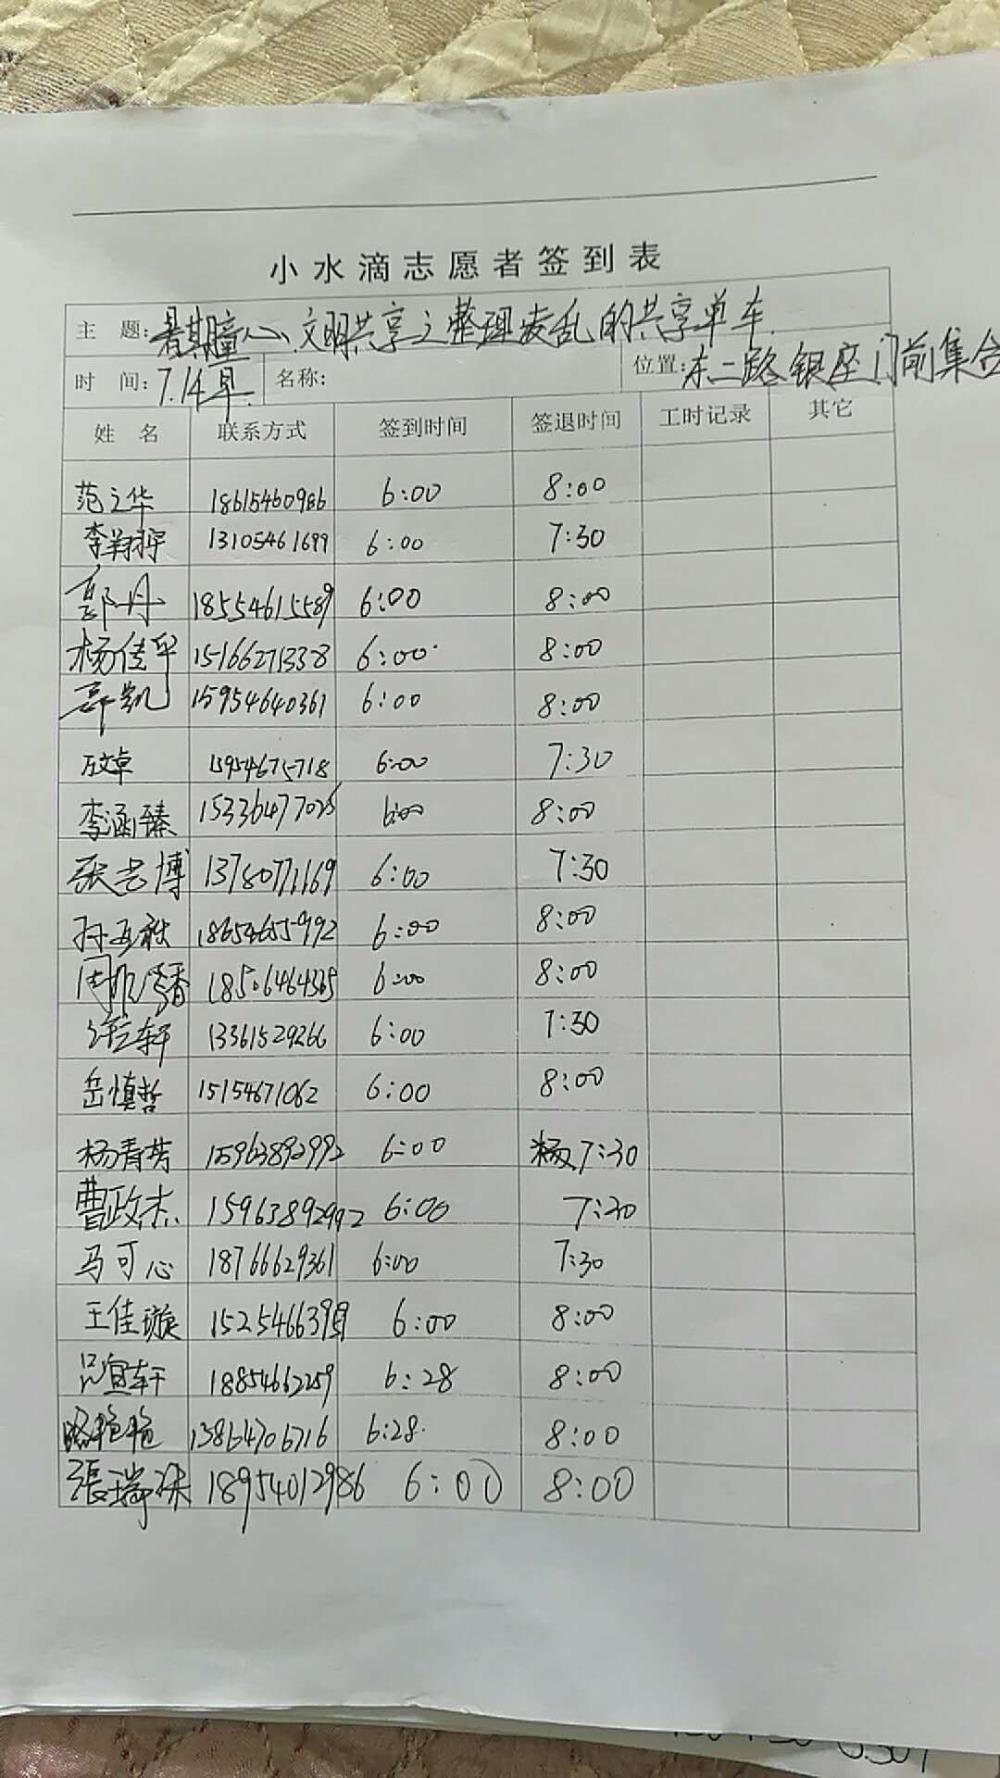 小水滴志愿者签到表
主 题: 暑期童心、文明共享之整理凌乱的共享单车
时 间: 7.14早 名称: 位置: 东二路银座门前集合
姓 名 联系方式 签到时间 签退时间 工时记录 其它
范之华 18615460986 6:00 8:00
李翔宇 13105461699 6:00 7:30
郭丹 18554615589 6:00 8:00
杨佳平 15166271338 6:00 8:00
郭凯 15954640361 6:00 8:00
15954675718 6:00 7:30
李涵臻 6:00 8:00
张艺博 13780771169 6:00 7:30
18654655992 6:00 8:00
6:00 8:00
13361529266 6:00 7:30
岳慎哲 15154671062 6:00 8:00
杨青芳 15963892992 6:00 7:30
曹政杰 15963892992 6:00 7:30
马可心 18766629361 6:00 7:30
王佳璇 6:00 8:00
吕宜轩 18854662259 6:28 8:00
路艳艳 13864706716 6:28 8:00
張瑞 18954012986 6:00 8:00